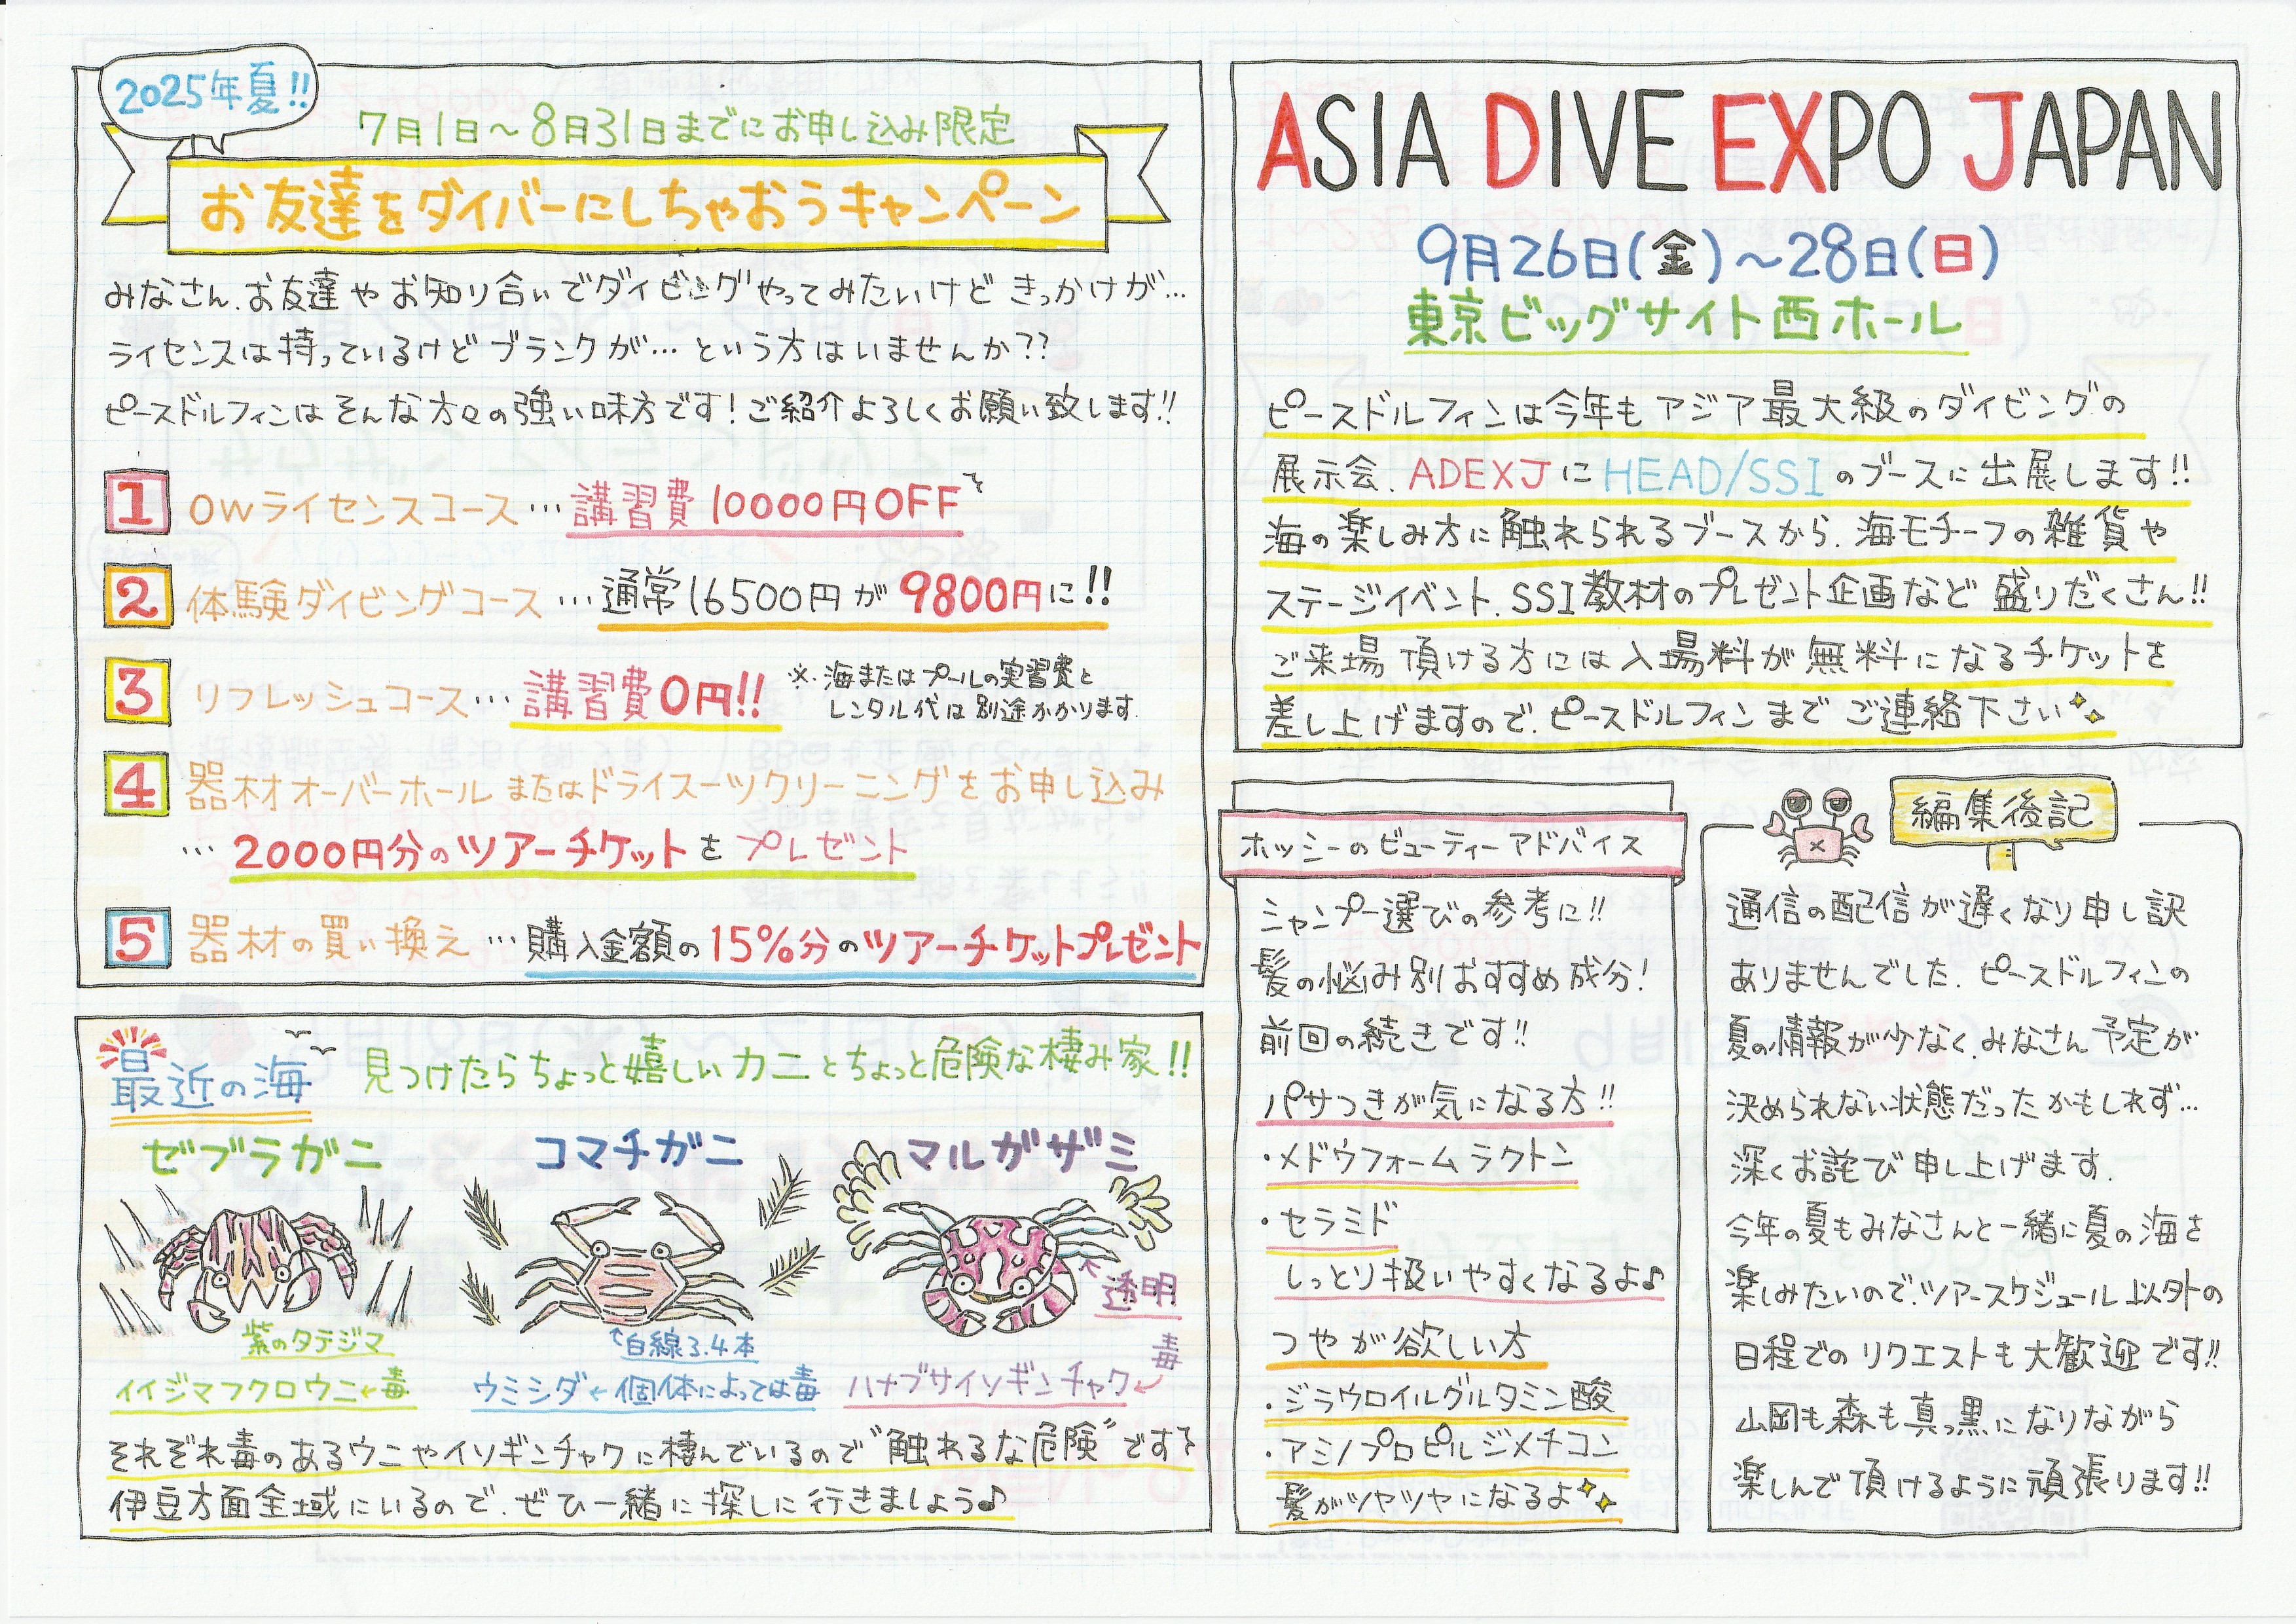 2025年夏!!
7月1日～8月31日までにお申し込み限定
お友達をダイバーにしちゃおうキャンペーン
みなさん、お友達やお知り合いでダイビングやってみたいけどきっかけが…
ライセンスは持っているけどブランクが…という方はいませんか??
ピースドルフィンはそんな方々の強い味方です!ご紹介よろしくお願い致します!!
1 OWライセンスコース…講習費10000円OFF
2 体験ダイビングコース…通常16500円が9800円に!!
3 リフレッシュコース…講習費0円!! ※海またはプールの実習費と
レンタル代は別途かかります.
4 器材オーバーホールまたはドライスーツクリーニングをお申し込み
…2000円分のツアーチケットをプレゼント
5 器材の買い換え…購入金額の15%分のツアーチケットプレゼント
最近の海 見つけたらちょっと嬉しいカニとちょっと危険な棲み家!!
ゼブラガニ コマチガニ マルガザミ
透明
紫のタテジマ ↑白線3.4本 毒
イイジマフクロウニ←毒 ウミシダ←個体によっては毒 ハナブサイソギンチャク
それぞれ毒のあるウニやイソギンチャクに棲んでいるので"触れるな危険"です
伊豆方面全域にいるので、ぜひ一緒に探しに行きましょう♪
ASIA DIVE EXPO JAPAN
9月26日(金)～28日(日)
東京ビッグサイト西ホール
ピースドルフィンは今年もアジア最大級のダイビングの
展示会、ADEXJにHEAD/SSIのブースに出展します!!
海の楽しみ方に触れられるブースから、海モチーフの雑貨や
ステージイベント、SSI教材のプレゼント企画など盛りだくさん!!
ご来場頂ける方には入場料が無料になるチケットを
差し上げますので、ピースドルフィンまでご連絡下さい
ホッシーのビューティーアドバイス
シャンプー選びの参考に!!
髪の悩み別おすすめ成分!
前回の続きです!!
パサつきが気になる方!!
・メドウフォームラクトン
・セラミド
しっとり扱いやすくなるよ♪
つやが欲しい方
・ジラウロイルグルタミン酸
・アミノプロピルジメチコン
髪がツヤツヤになるよ
編集後記
通信の配信が遅くなり申し訳
ありませんでした。ピースドルフィンの
夏の情報が少なく、みなさん予定が
決められない状態だったかもしれず…
深くお詫び申し上げます.
今年の夏もみなさんと一緒に夏の海を
楽しみたいので、ツアースケジュール以外の
日程でのリクエストも大歓迎です!!
山岡も森も真っ黒になりながら
楽しんで頂けるように頑張ります!!